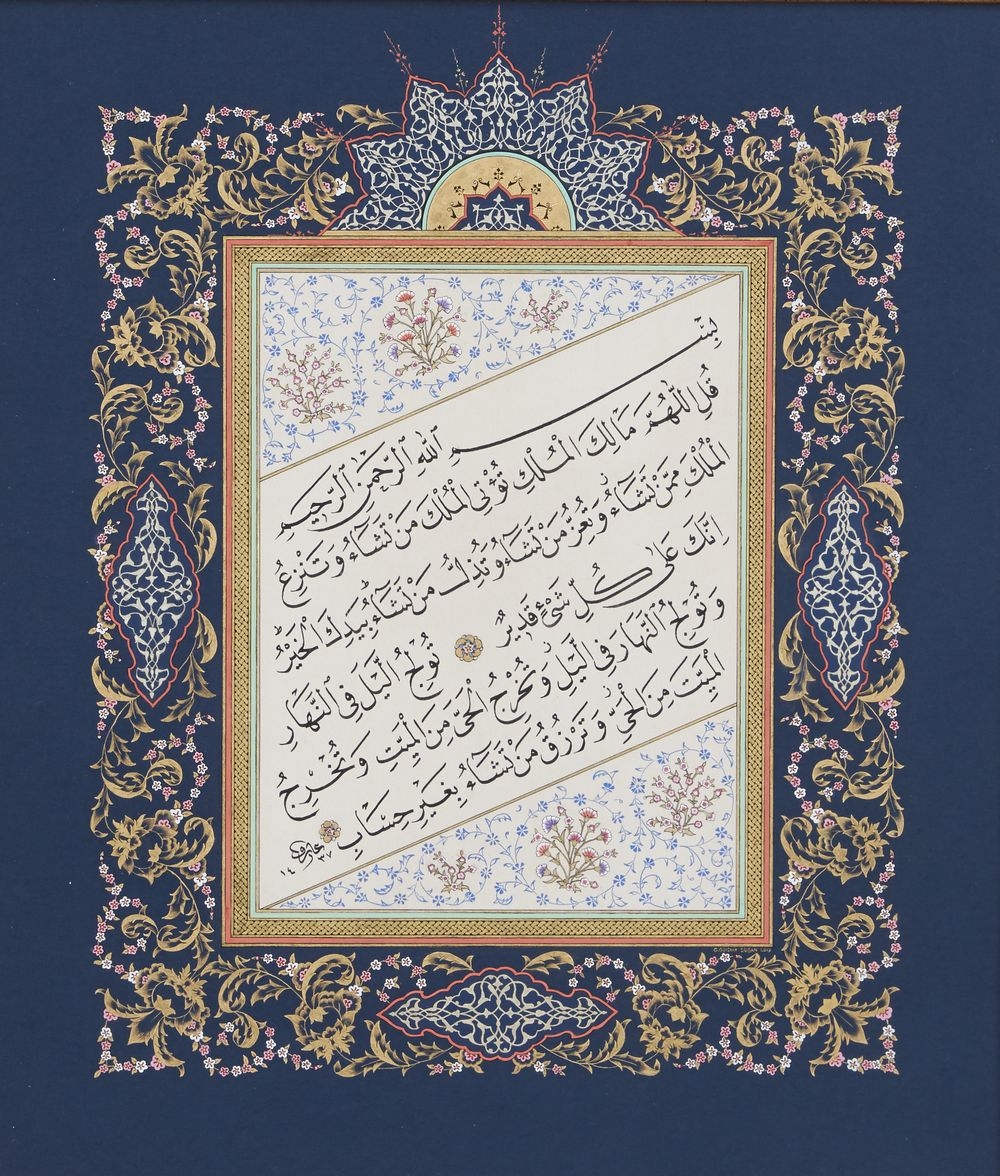 بِسْمِ اللهِ الرَّحْمٰنِ الرَّحِيمِ
قُلِ اللّٰهُمَّ مَالِكَ الْمُلْكِ تُؤْتِى الْمُلْكَ مَنْ تَشَاءُ وَتَنْزِعُ
الْمُلْكَ مِمَّنْ تَشَاءُ وَتُعِزُّ مَنْ تَشَاءُ وَتُذِلُّ مَنْ تَشَاءُ بِيَدِكَ الْخَيْرُ
اِنَّكَ عَلٰى كُلِّ شَىْءٍ قَدِيرٌ تُولِجُ الَّيْلَ فِى النَّهَارِ
وَتُولِجُ النَّهَارَ فِى الَّيْلِ وَتُخْرِجُ الْحَىَّ مِنَ الْمَيِّتِ وَتُخْرِجُ
الْمَيِّتَ مِنَ الْحَىِّ وَتَرْزُقُ مَنْ تَشَاءُ بِغَيْرِ حِسَابٍ
١٤ ٣٧